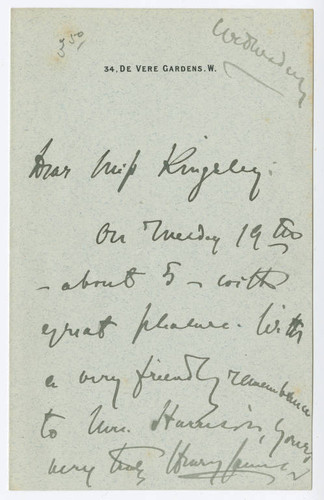 3.50
Wednesday
34, DE VERE GARDENS. W.
Dear Miss Kingsley.
On Tuesday 19th
- about 5 - with
great pleasure. With
a very friendly remembrance
to Mrs. Harrison, yours
very truly Henry James